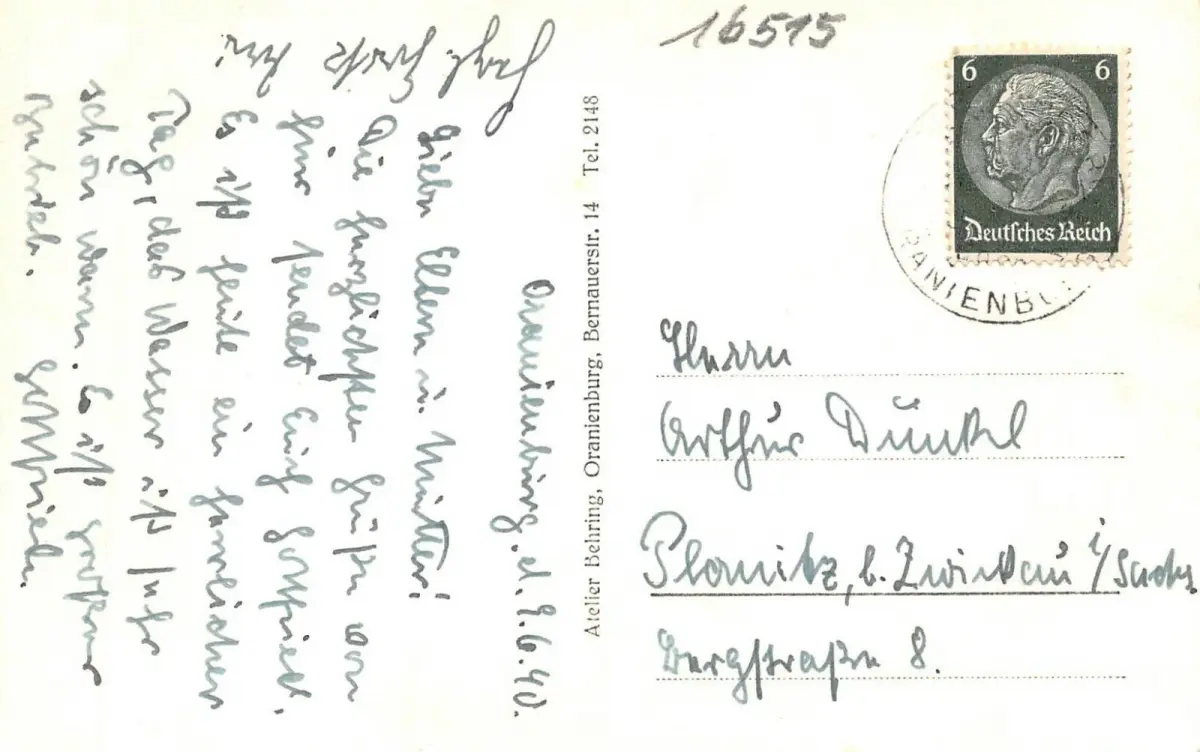 Oranienburg, d. 9.6.40.
Liebe Eltern u. Mutter!
Die herzlichsten Grüße von
hier sendet Euch Gottfried.
Es ist heute ein herrlicher
Tag, das Wasser ist sehr
schön warm. Es ist
Betrieb. Gottfried.
Herzl. Grüße
Atelier Behring, Oranienburg, Bernauerstr. 14 Tel. 2148
16515
6 6
Deutsches Reich
RANIENBU
Herrn
Arthur Dunkel
Planitz, b. Zwickau i/Sachs
Bergstraße 8.